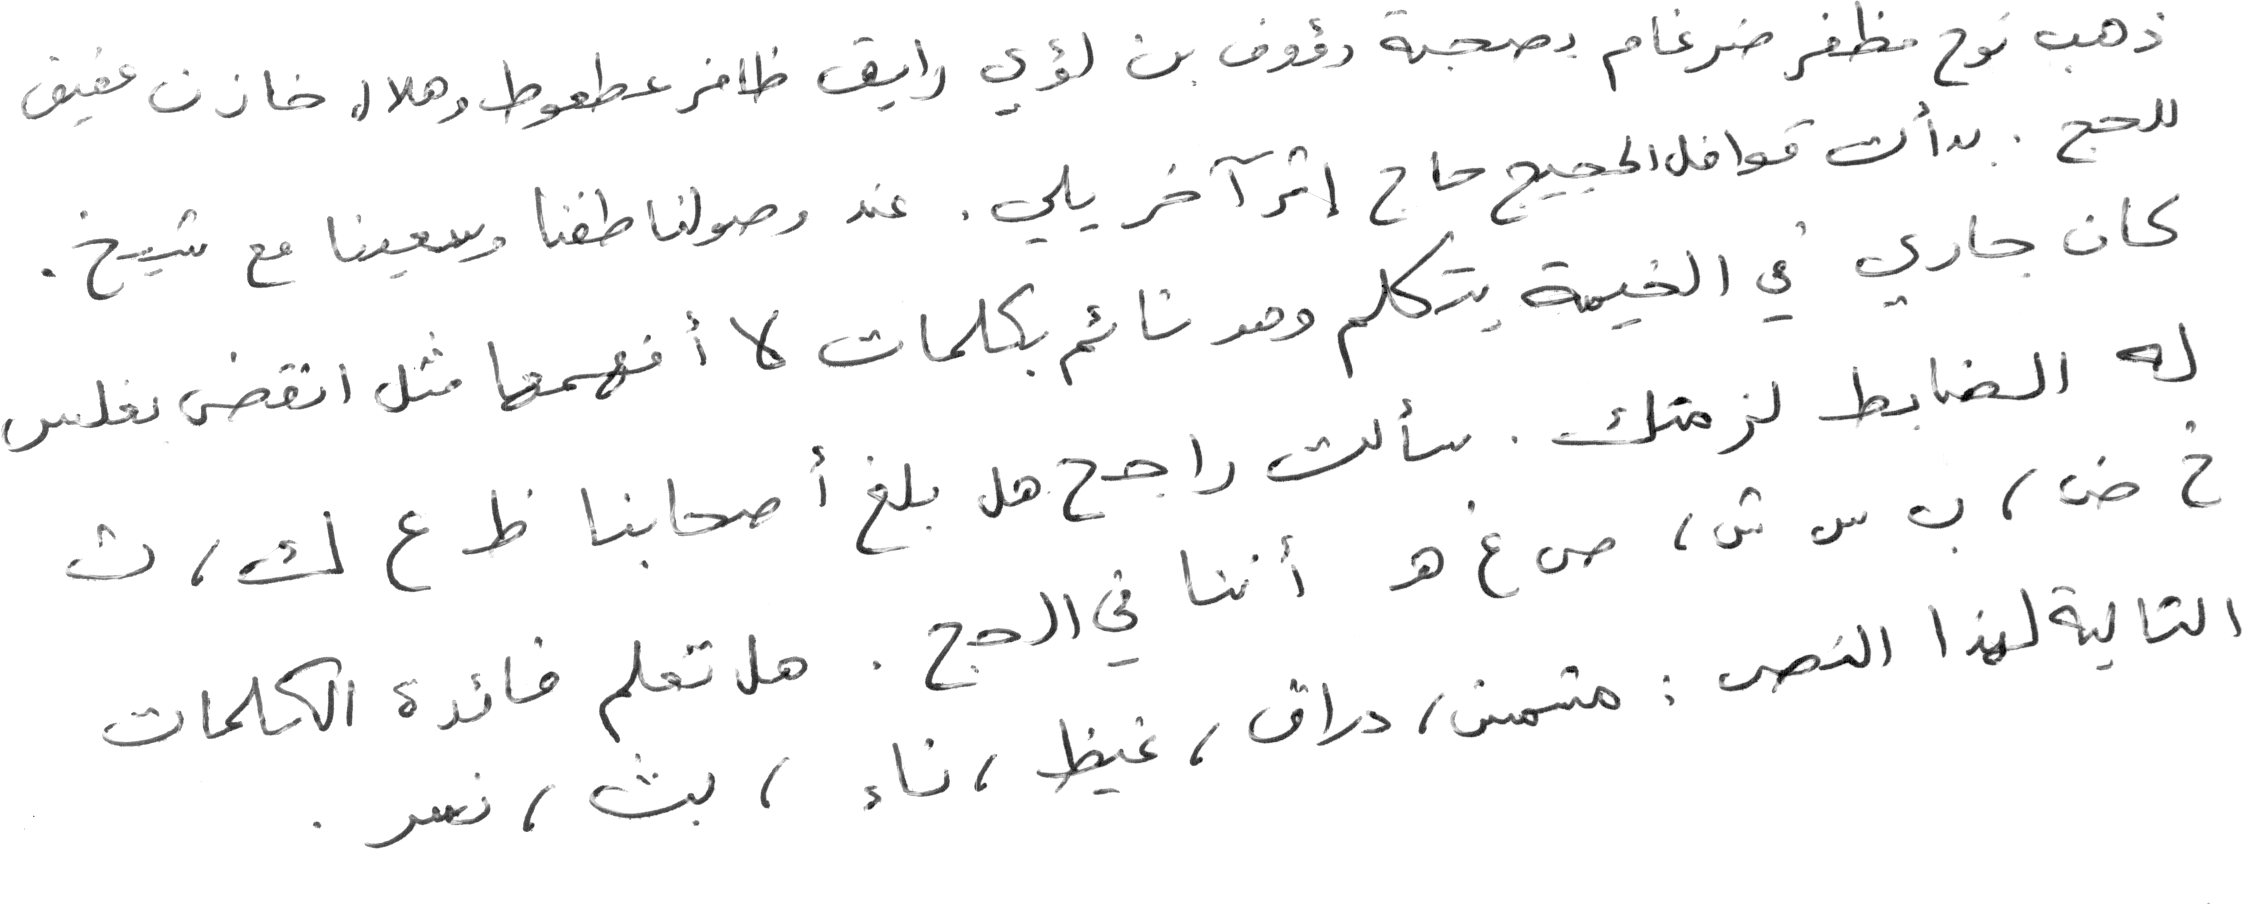 ذهب نوح مظفر ضرغام بصحبة رؤوف بن لؤي رايق ظافر عطعوط وهلال خازن عفيق
للحج . بدأت قوافل الحجيج حاج إثر آخر يلي . عند وصولنا طفنا وسعينا مع شيخ .
كان جاري في الخيمة يتكلم وهو نائم بكلمات لا أفهمها مثل انقض بغلس
له الضابط لزمتك . سألت راجح هل بلغ أصحابنا ظ ع ك ، ث
خ ض ، ب س ش ، ص غ هـ أننا في الحج . هل تعلم فائدة الكلمات
التالية لهذا النص : مشمش ، دراق ، غيظ ، ناء ، بث ، نسر .